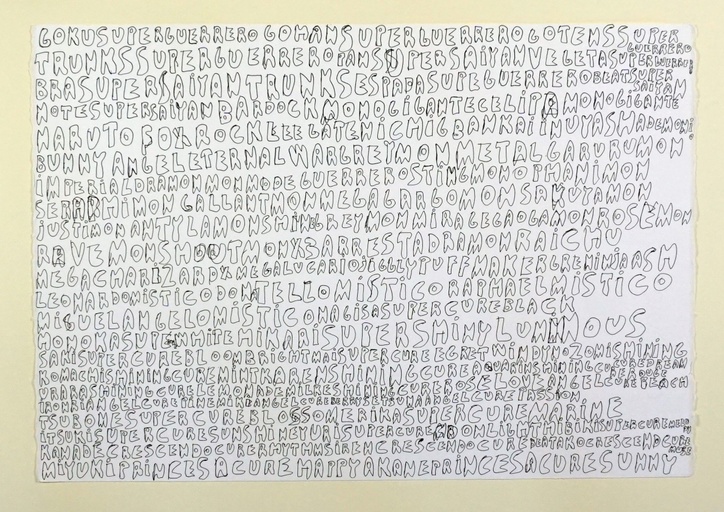 GOKUSUPERGUERREROGOHANSUPERGUERREROGOTENSSUPER GUERRERO
TRUNKSSUPERGUERREROPANSUPERSAiYANVEGETASUPERGUERRERO
BRASUPERSAiYANTRUNKSESPADASUPEGUERREROBLATSUPER SAiYAN
NOTESUPERSAiYANBARDOCKMONOGiGANTECELiPAMONOGiGANTE
NARUTOFOXROCKLEELATENiCHiGBANKAiiNUYASHADEMONiO
BUNNYANGELETERNALWARGREYMONMETALGARURUMON
iMPERiALDRAMONMONMODEGUERREROSTiNGMONOPHANiMON
SERAPHiMONGALLANTMONMEGAGARGOMONSAKUYAMON
JUSTiMONANTYLAMONSHiNEGREYMONMiRAGEGAOGAMONROSEMON
RAVEMONSHOUTMONX3ARRESTADRAMONRAiCHU
MEGACHARiZARDXMEGALUCARiOJiGGLYPUFFMAKERGRENiNJAASH
LEONARDOMiSTiCODONATELLOMiSTiCORAPHAELMiSTiCO
MiGUELANGELOMiSTiCONAGiSASUPERCUREBLACK
HONOKASUPERWHiTEHiKARiSUPERSHiNYLUMiNOUS
SAKiSUPERCUREBLOOMBRiGHTMAiSUPERCUREEGRETWiNDYNOZOMiSHiNiNG CUREDREAM
KOMACHiSHiNiNGCUREMiNTKARENSHiNiNGCUREAQUARiNSHiNiNGCUREROUGE
URARASHiNiNGCURELEMONADEMiLKESHiNiNGCUREROSELOVEANGELCUREPEACH
TSUBOMESUPERCUREBLOSSOMERiKASUPERCUREMARiNE
iTSUKiSUPERCURESUNSHiNEYURiSUPERCUREMOONLiGHTHiBiKiSUPERCUREMELODY
KANADECRESCENDOCURERHYTHMSiRENCRESCENDOCUREBEATAKOCRESCENDCURE MUSE
MiYUKiPRiNCESACUREHAPPYAKANEPRiNCESACURESUNNY